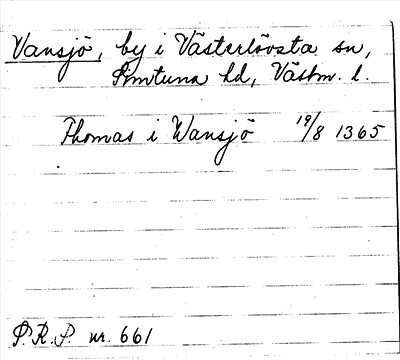 Vansjö, by i Västerlövsta sn,
Simtuna hd, Västm. l.
Thomas i Wansjö 19/8 1365
P.R.P. nr. 661